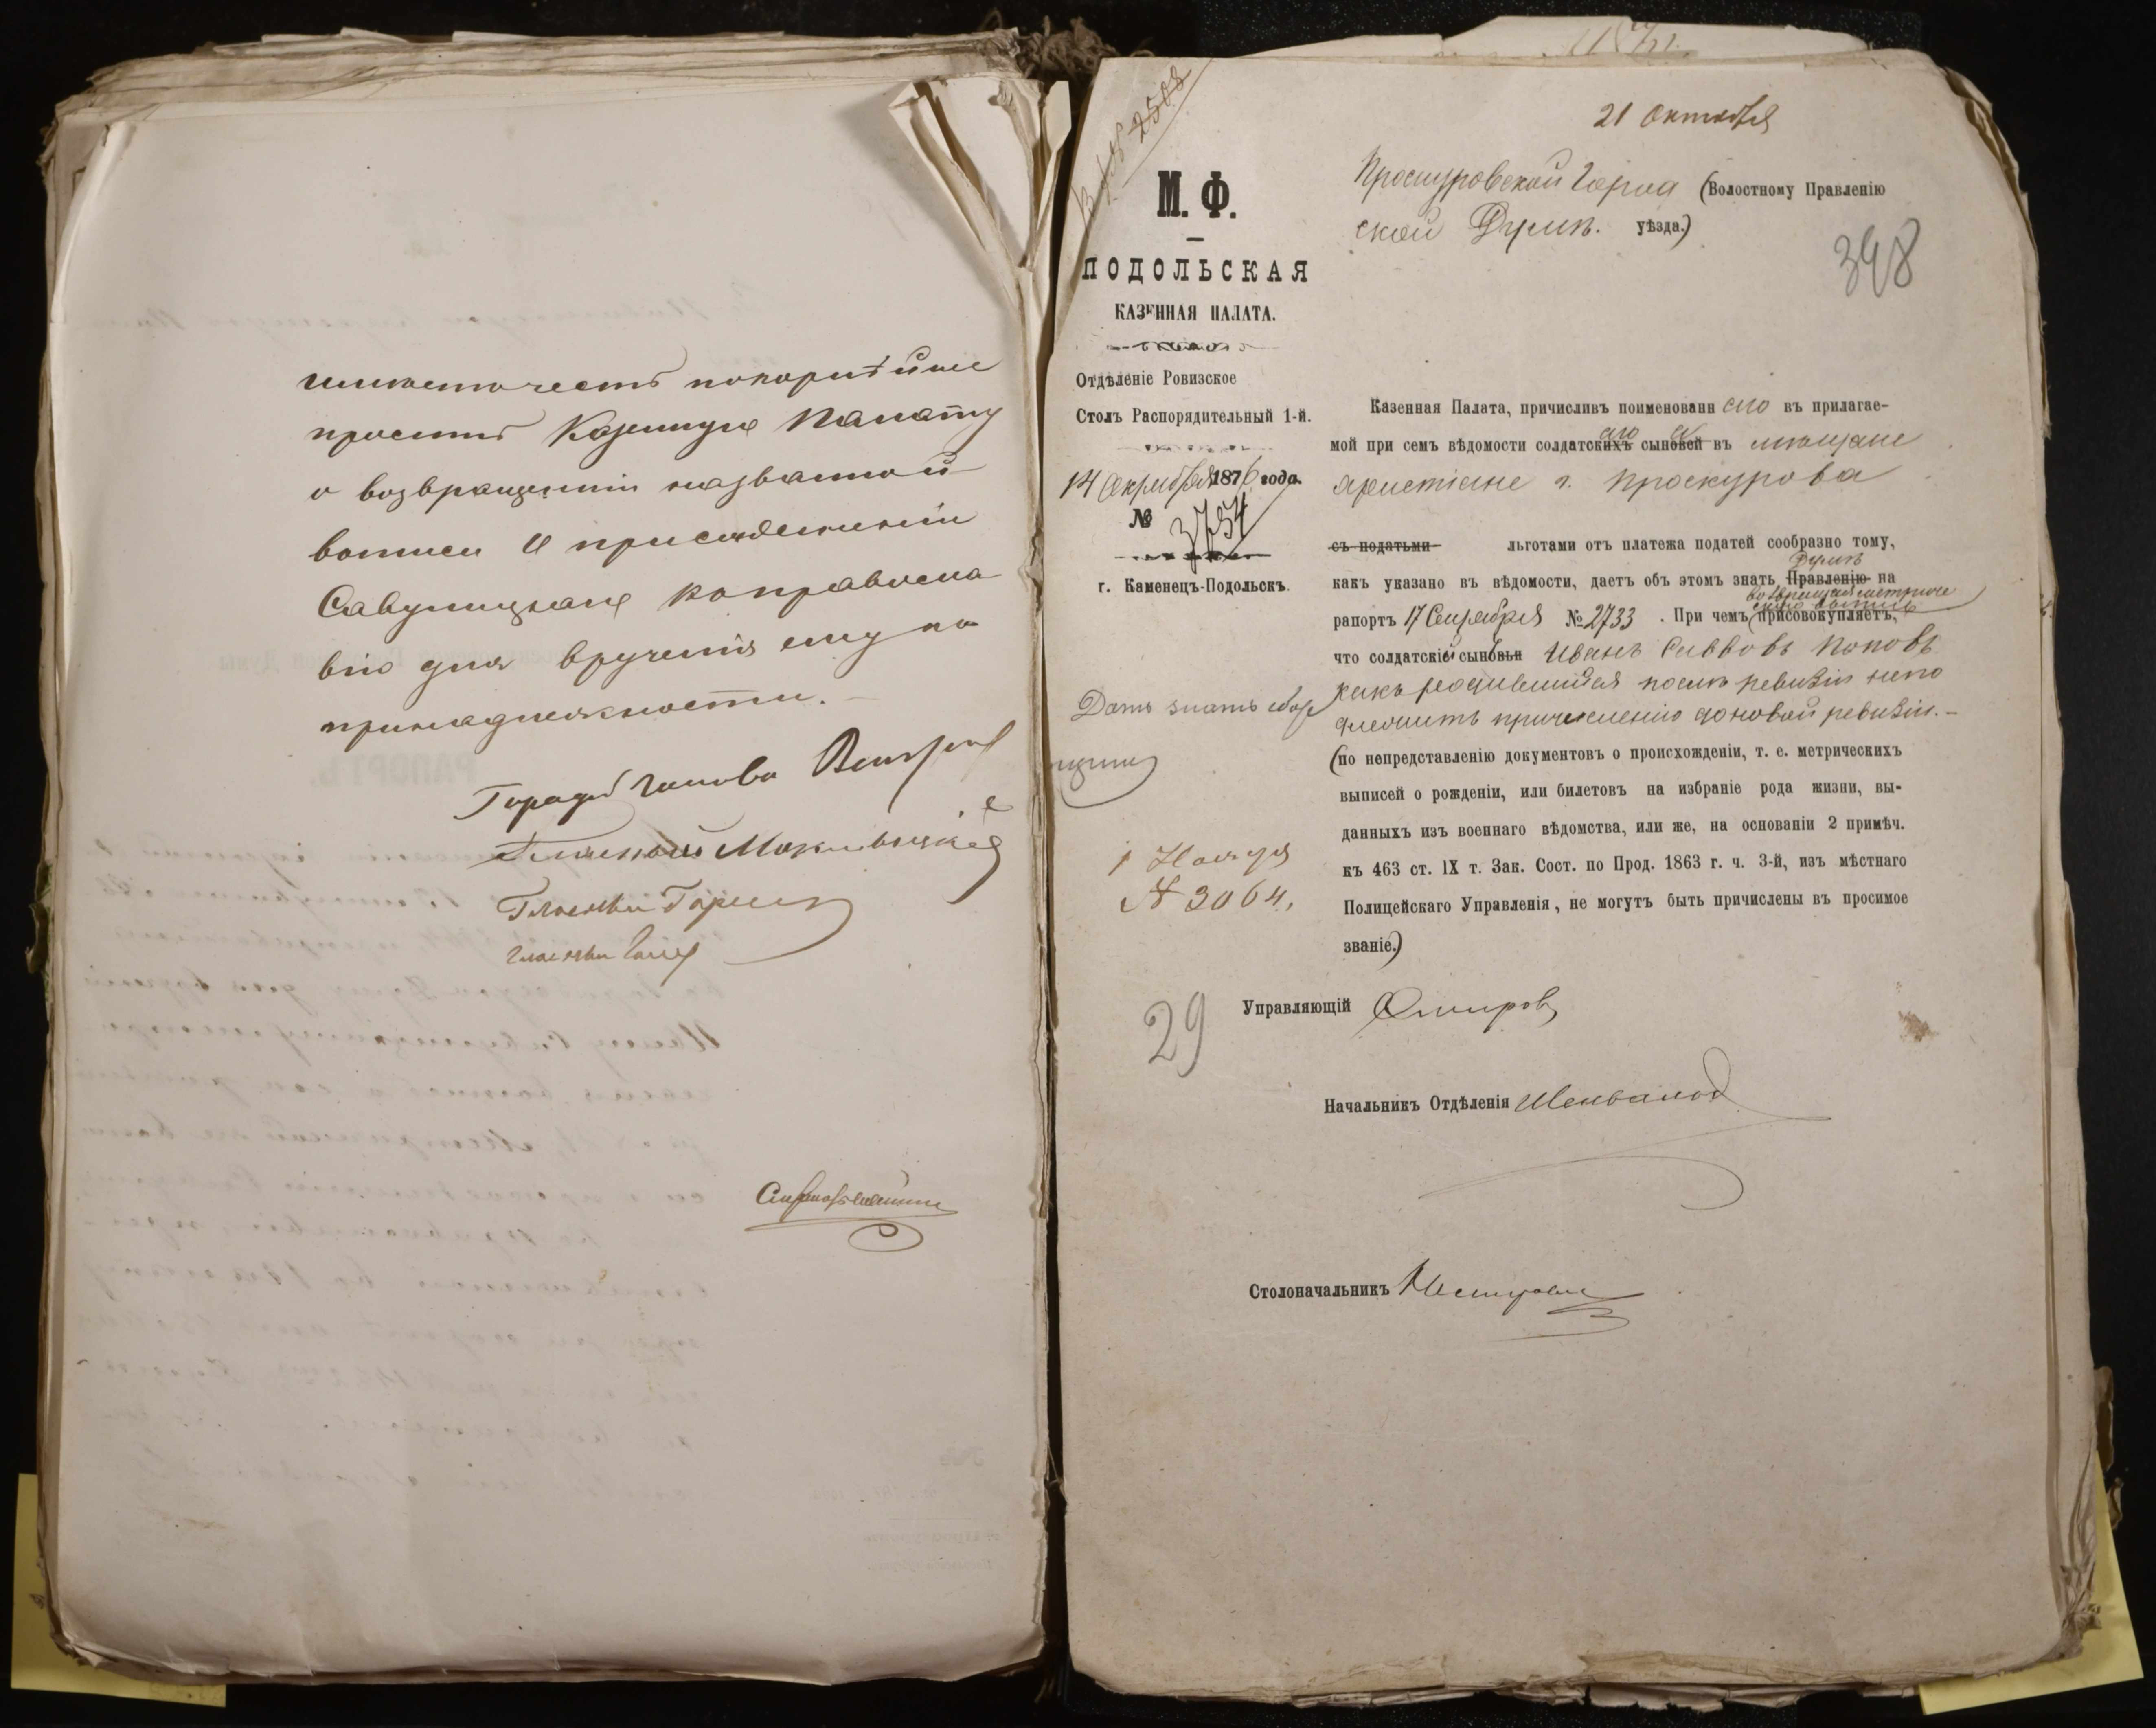 имѣетъ честь покорнѣйше
проситъ Казенную Палату
о возвращеніи названной
выписи и присоединеніи
Савулицкаго
вію для врученія ему по
принадлежности.
Городской Голова
Гласный
Гласный
Гласный
Вх. № 2508
21 Октября
М. Ф.
ПОДОЛЬСКАЯ
КАЗЕННАЯ ПАЛАТА.
Отдѣленіе Ровизское
Столъ Распорядительный 1-й.
14 Октября 1876 года.
№ 3754
г. Каменецъ-Подольскъ.
Дать знать сбор
щику
1 Ноября
№ 3064.
29
Проскуровской Город (Волостному Правленію
ской Думѣ. уѣзда.)
398
Казенная Палата, причисливъ поименованн его въ прилагае-
мой при семъ вѣдомости солдатскихъ аго сыновей а въ мѣщане
христіане г. Проскурова
съ податьми льготами отъ платежа податей сообразно тому,
Думѣ
какъ указано въ вѣдомости, даетъ объ этомъ знать Правленію на
возвращая метриче
скую выпись
рапортъ 17 Сентября № 2733 . При чемъ (присовокупляетъ,
что солдатскіе сыновья Иванъ Савовъ Поповъ
какъ родившійся послѣ ревизіи непо
длежитъ причисленію до новой ревизіи.—
(по непредставленію документовъ о происхожденіи, т. е. метрическихъ
выписей о рожденіи, или билетовъ на избраніе рода жизни, вы-
данныхъ изъ военнаго вѣдомства, или же, на основаніи 2 примѣч.
къ 463 ст. IX т. Зак. Сост. по Прод. 1863 г. ч. 3-й, изъ мѣстнаго
Полицейскаго Управленія, не могутъ быть причислены въ просимое
званіе.)
Управляющій
Начальникъ Отдѣленія
Столоначальникъ